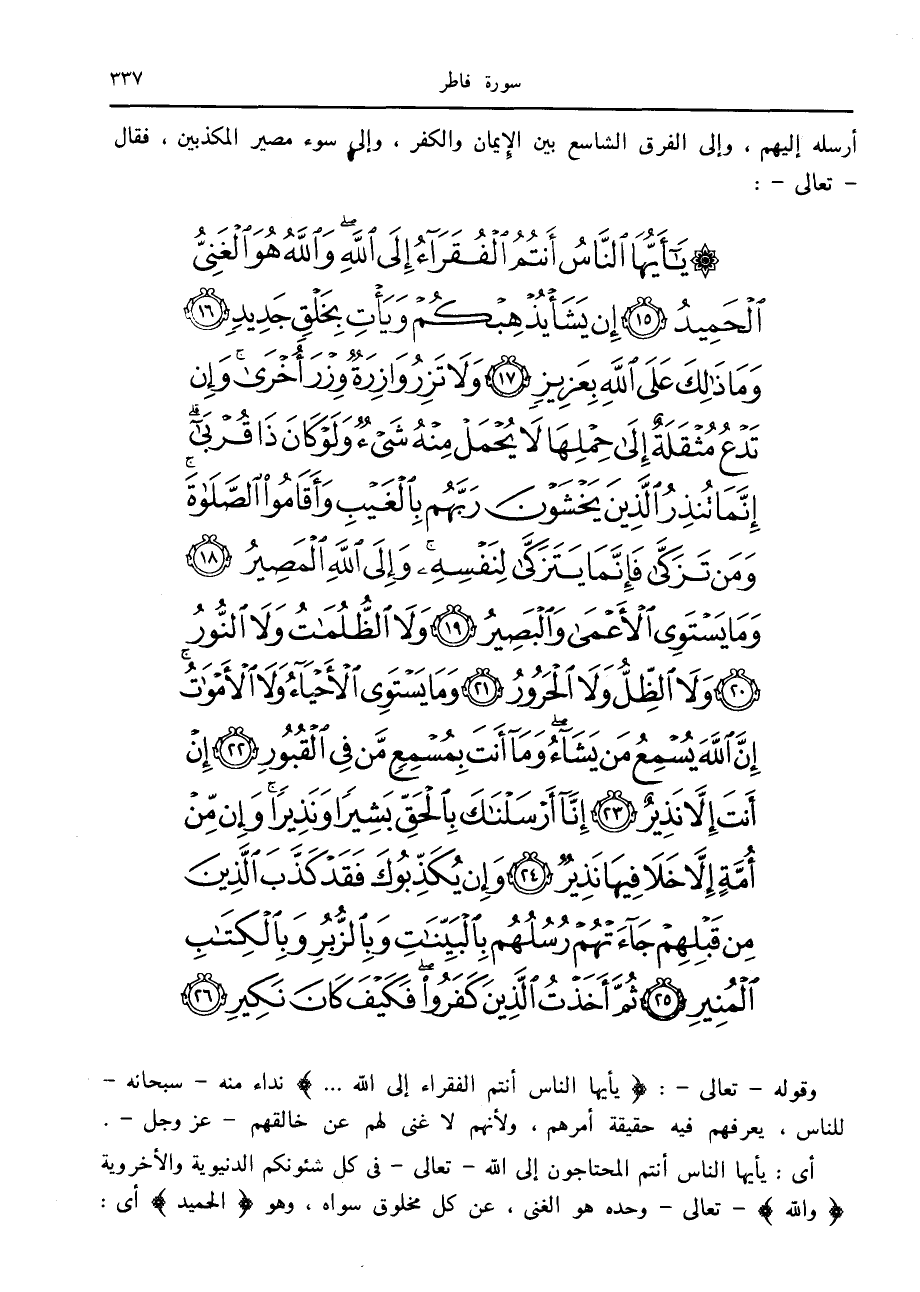 سورة فاطر ٣٣٧
أرسله إليهم ، وإلى الفرق الشاسع بين الإيمان والكفر ، وإلى سوء مصير المكذبين ، فقال
– تعالى – :
۞ يَٰٓأَيُّهَا ٱلنَّاسُ أَنتُمُ ٱلۡفُقَرَآءُ إِلَى ٱللَّهِۖ وَٱللَّهُ هُوَ ٱلۡغَنِيُّ
ٱلۡحَمِيدُ ١٥ إِن يَشَأۡ يُذۡهِبۡكُمۡ وَيَأۡتِ بِخَلۡقٖ جَدِيدٖ ١٦
وَمَا ذَٰلِكَ عَلَى ٱللَّهِ بِعَزِيزٖ ١٧ وَلَا تَزِرُ وَازِرَةٞ وِزۡرَ أُخۡرَىٰۚ وَإِن
تَدۡعُ مُثۡقَلَةٌ إِلَىٰ حِمۡلِهَا لَا يُحۡمَلۡ مِنۡهُ شَيۡءٞ وَلَوۡ كَانَ ذَا قُرۡبَىٰٓۗ
إِنَّمَا تُنذِرُ ٱلَّذِينَ يَخۡشَوۡنَ رَبَّهُم بِٱلۡغَيۡبِ وَأَقَامُواْ ٱلصَّلَوٰةَۚ
وَمَن تَزَكَّىٰ فَإِنَّمَا يَتَزَكَّىٰ لِنَفۡسِهِۦۚ وَإِلَى ٱللَّهِ ٱلۡمَصِيرُ ١٨
وَمَا يَسۡتَوِي ٱلۡأَعۡمَىٰ وَٱلۡبَصِيرُ ١٩ وَلَا ٱلظُّلُمَٰتُ وَلَا ٱلنُّورُ
٢٠ وَلَا ٱلظِّلُّ وَلَا ٱلۡحَرُورُ ٢١ وَمَا يَسۡتَوِي ٱلۡأَحۡيَآءُ وَلَا ٱلۡأَمۡوَٰتُۚ
إِنَّ ٱللَّهَ يُسۡمِعُ مَن يَشَآءُۖ وَمَآ أَنتَ بِمُسۡمِعٖ مَّن فِي ٱلۡقُبُورِ ٢٢ إِنۡ
أَنتَ إِلَّا نَذِيرٌ ٢٣ إِنَّآ أَرۡسَلۡنَٰكَ بِٱلۡحَقِّ بَشِيرٗا وَنَذِيرٗاۚ وَإِن مِّنۡ
أُمَّةٍ إِلَّا خَلَا فِيهَا نَذِيرٞ ٢٤ وَإِن يُكَذِّبُوكَ فَقَدۡ كَذَّبَ ٱلَّذِينَ
مِن قَبۡلِهِمۡ جَآءَتۡهُمۡ رُسُلُهُم بِٱلۡبَيِّنَٰتِ وَبِٱلزُّبُرِ وَبِٱلۡكِتَٰبِ
ٱلۡمُنِيرِ ٢٥ ثُمَّ أَخَذۡتُ ٱلَّذِينَ كَفَرُواْۖ فَكَيۡفَ كَانَ نَكِيرِ ٢٦
وقوله – تعالى – : ﴿ يأيها الناس أنتم الفقراء إلى الله ... ﴾ نداء منه – سبحانه –
للناس ، يعرفهم فيه حقيقة أمرهم ، ولأنهم لا غنى لهم عن خالقهم – عز وجل – .
أى : يأيها الناس أنتم المحتاجون إلى الله – تعالى – فى كل شئونكم الدنيوية والأخروية
﴿ والله ﴾ – تعالى – وحده هو الغنى ، عن كل مخلوق سواه ، وهو ﴿ الحميد ﴾ أى :